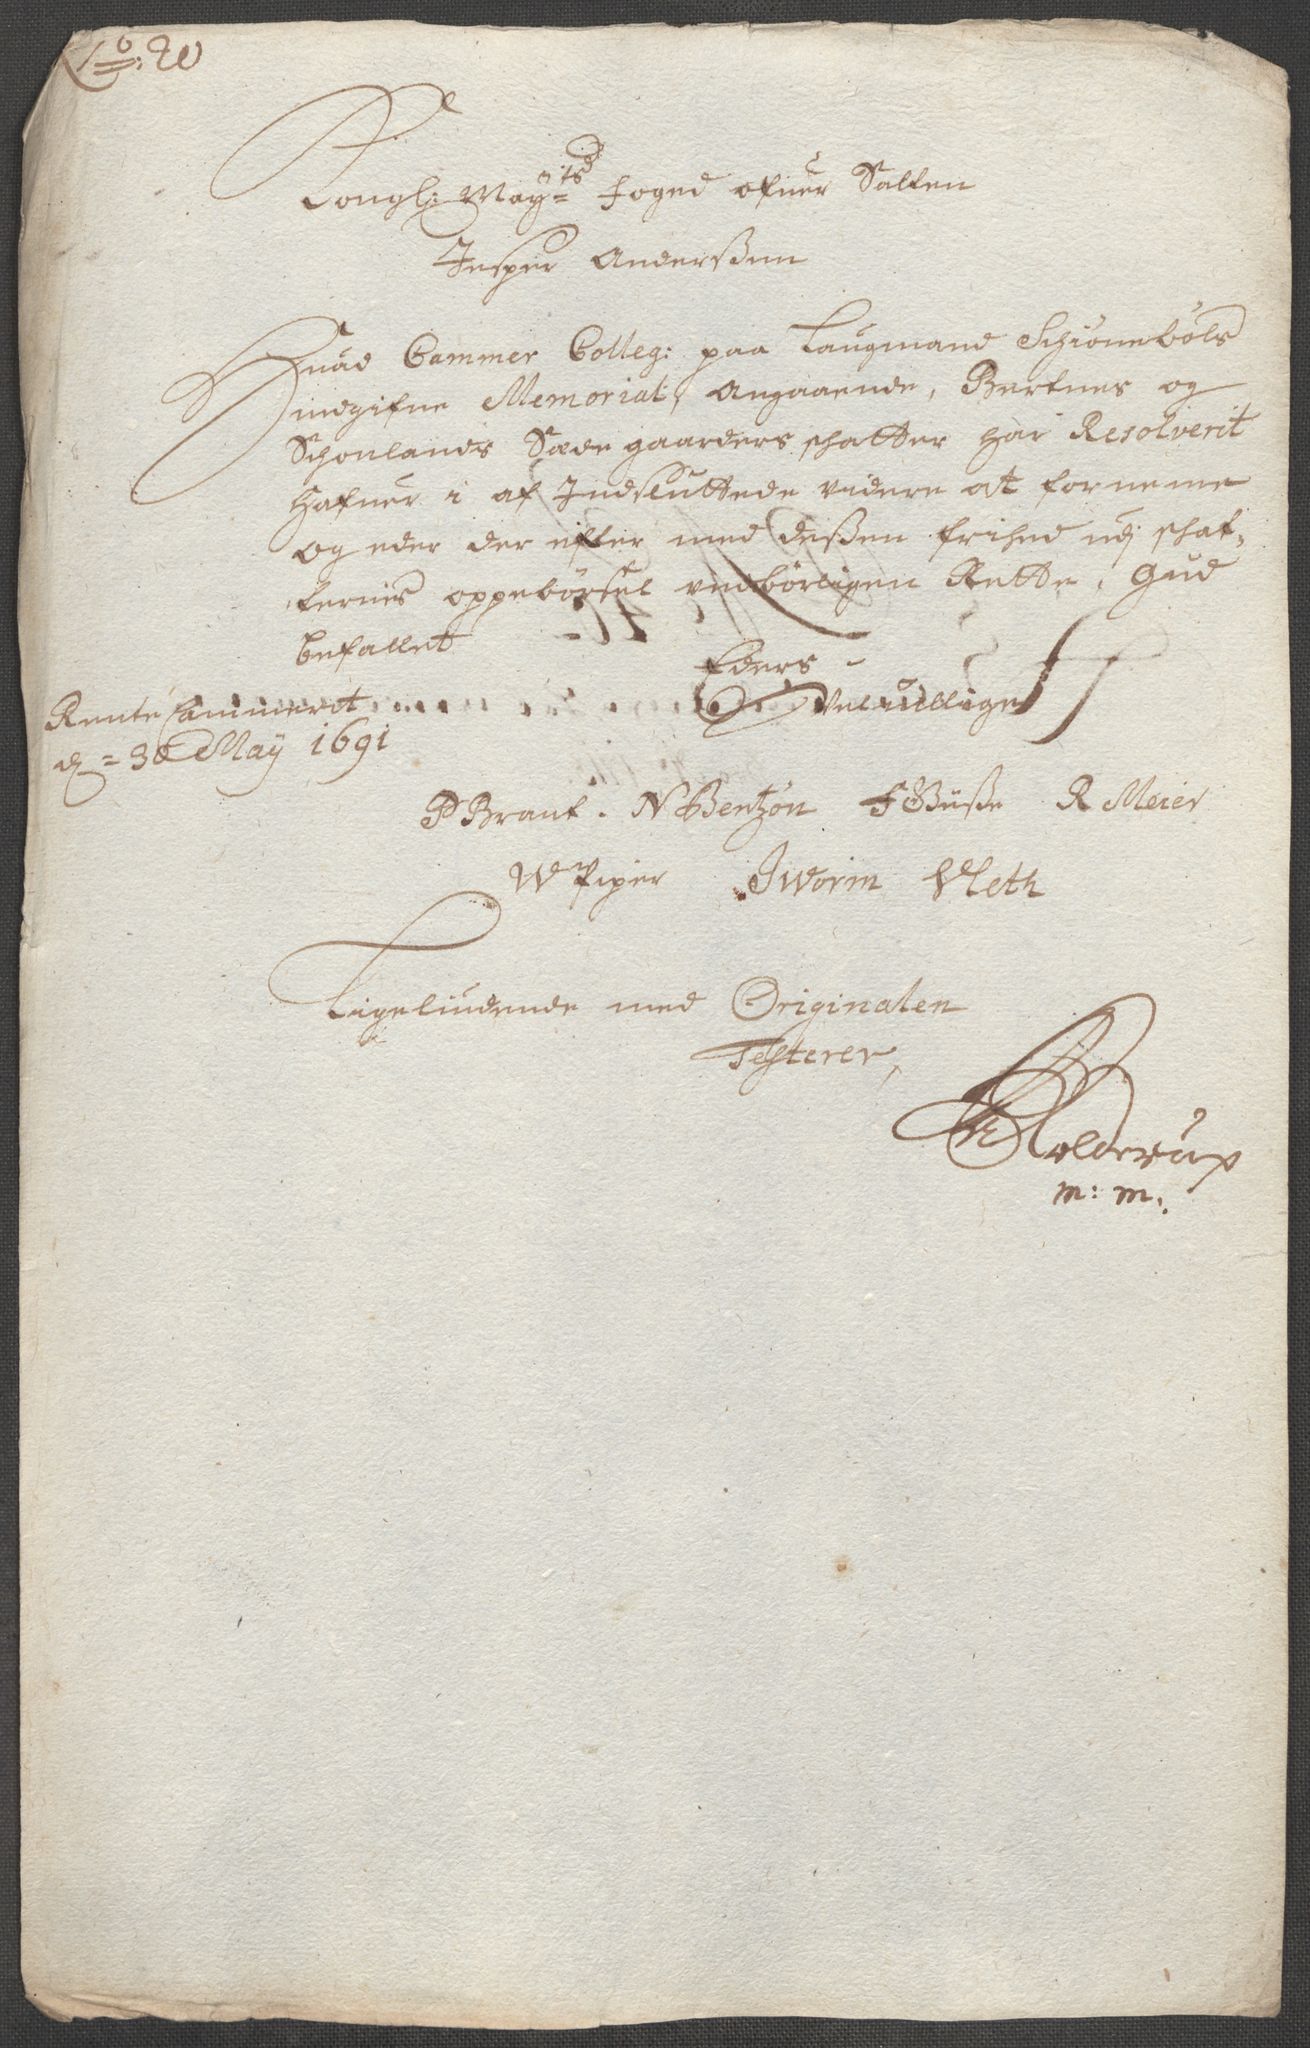 Kongl: May:ts foged ofuer Salten
Jesper Anderssen
Huad Cammer Colleg: paa Laugmand Schiönebøls
indgifne Memorial, Angaaende, Bertnes og
Schonlands Sædegaarders schatter har Resolverit
Hafuer i af Indsluttede videre at forneme
og eder der efter med dessen frihed udj schat-
ternis oppebörsel vedbörligen Rette, Gud
befallet
Eders
Veluillige
Rente Cammerit
d = 30 May 1691
P Brant . N Bentzon F Büsse R Meier
W Piper J Worm Vieth
Ligeliudende med Originalen
Testerer,
m: m.